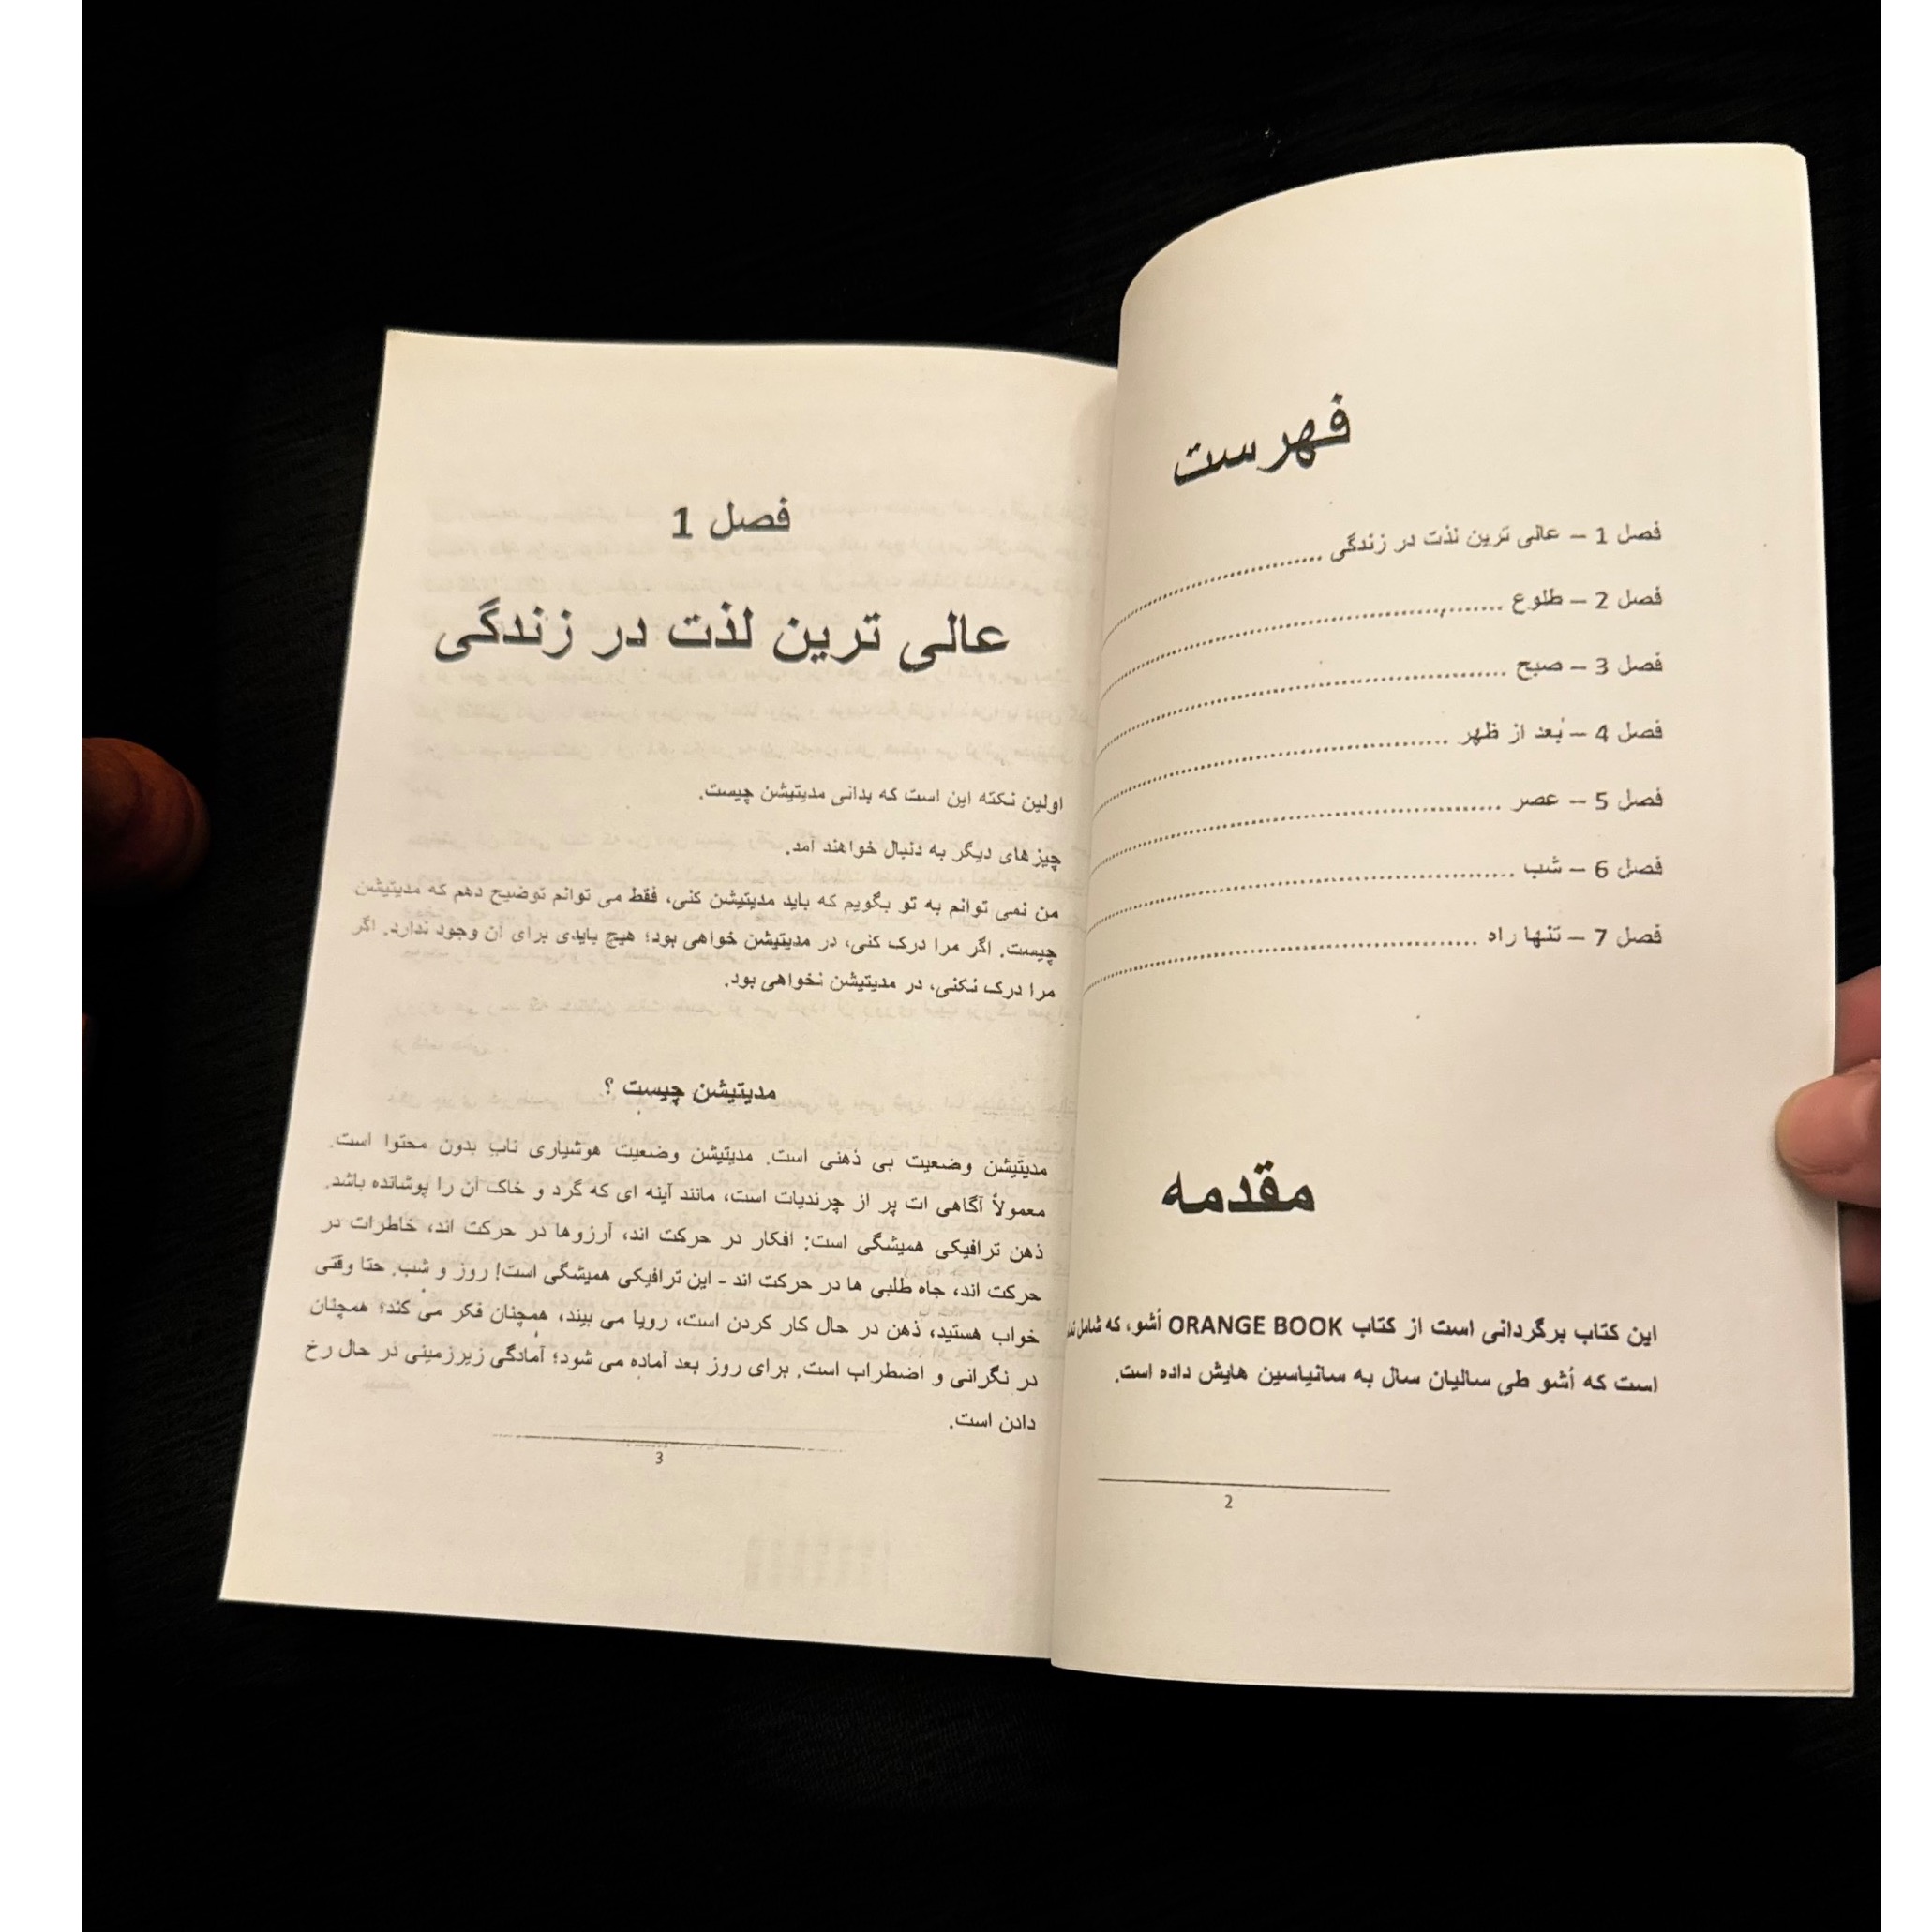 فهرست
فصل 1 – عالی ترین لذت در زندگی ..............
فصل 2 – طلوع ..............
فصل 3 – صبح ..............
فصل 4 – بُعد از ظهر ..............
فصل 5 – عصر ..............
فصل 6 – شب ..............
فصل 7 – تنها راه ..............
مقدمه
این کتاب برگردانی است از کتاب ORANGE BOOK اُشو، که شامل
است که اُشو طی سالیان سال به سانیاسین هایش داده است.
2
فصل 1
عالی ترین لذت در زندگی
اولین نکته این است که بدانی مدیتیشن چیست.
چیز های دیگر به دنبال خواهند آمد.
من نمی توانم به تو بگویم که باید مدیتیشن کنی، فقط می توانم توضیح دهم که مدیتیشن
چیست. اگر مرا درک کنی، در مدیتیشن خواهی بود؛ هیچ بایدی برای آن وجود ندارد. اگر
مرا درک نکنی، در مدیتیشن نخواهی بود.
مدیتیشن چیست ؟
مدیتیشن وضعیت بی ذهنی است. مدیتیشن وضعیت هوشیاری ناب بدون محتوا است.
معمولاً آگاهی ات پر از چرندیات است، مانند آینه ای که گرد و خاک آن را پوشانده باشد.
ذهن ترافیکی همیشگی است: افکار در حرکت اند، آرزوها در حرکت اند، خاطرات در
حرکت اند، جاه طلبی ها در حرکت اند - این ترافیکی همیشگی است! روز و شب. حتا وقتی
خواب هستید، ذهن در حال کار کردن است، رویا می بیند، همچنان فکر می کند؛ همچنان
در نگرانی و اضطراب است. برای روز بعد آماده می شود؛ آمادگی زیرزمینی در حال رخ
دادن است.
3